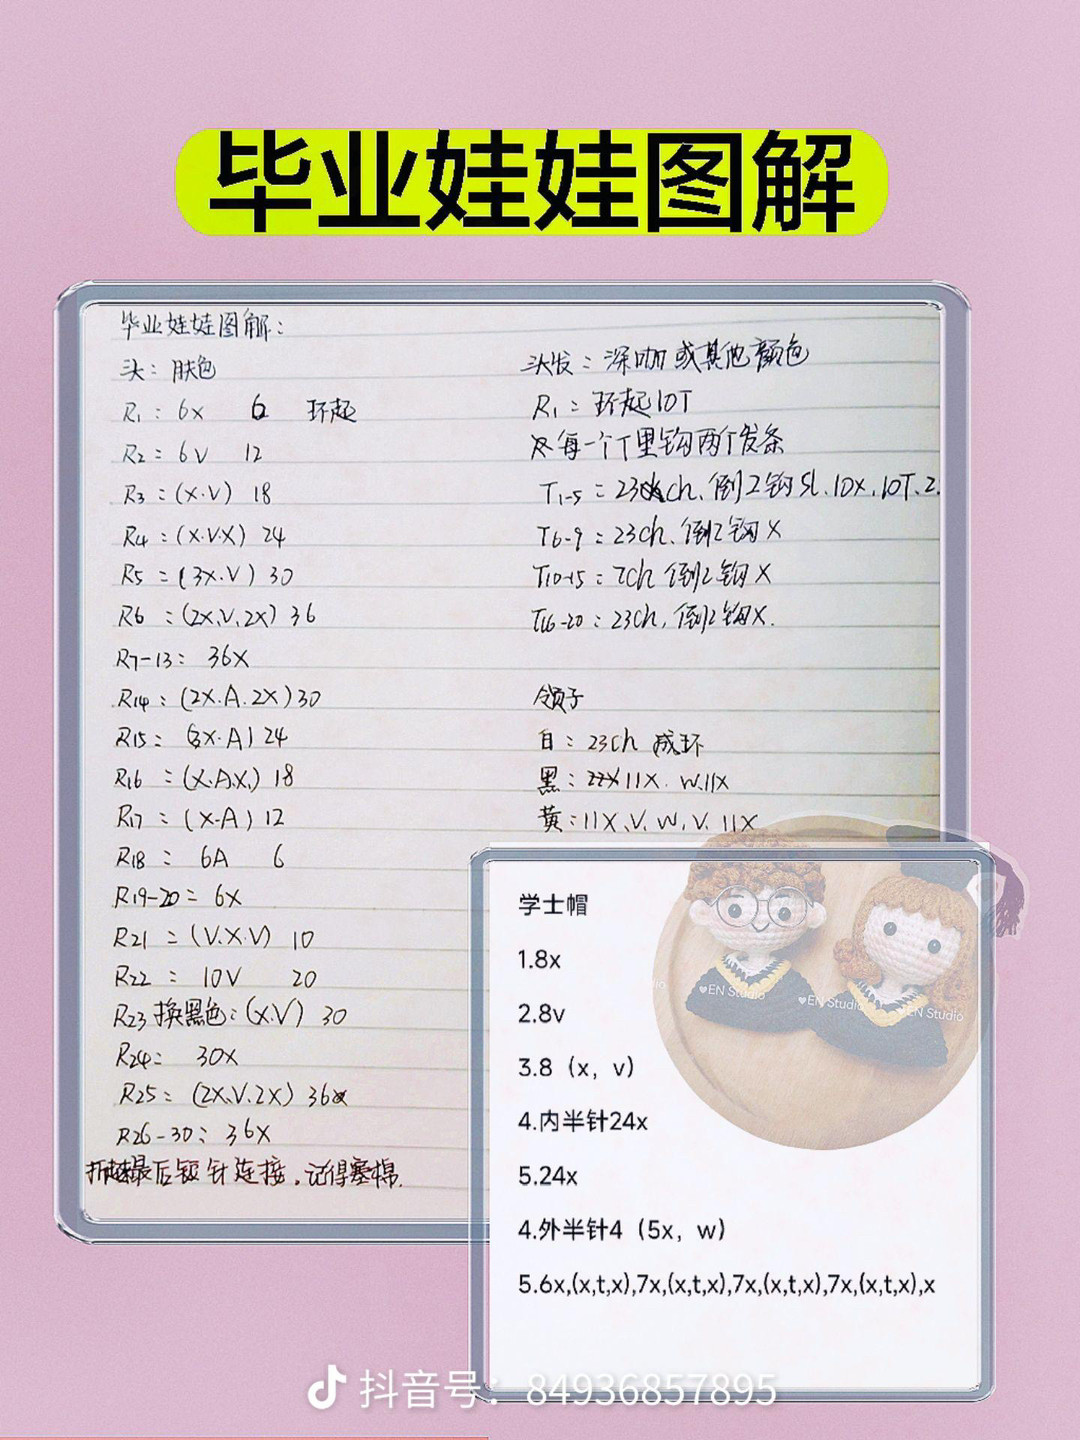 毕业娃娃图解
毕业娃娃图解:
头: 肤色
R1: 6x 6 环起
R2: 6V 12
R3: (x.V) 18
R4: (x.V.X) 24
R5: (3x.V) 30
R6: (2X,V,2X) 36
R7-13: 36X
R14: (2X.A.2X) 30
R15: (3X.A) 24
R16: (X.A.X) 18
R17: (X-A) 12
R18: 6A 6
R19-20= 6X
R21: (V.X.V) 10
R22= 10V 20
R23 换黑色: (X.V) 30
R24: 30X
R25: (2X.V.2X) 36
R26-30: 36X
最后短针连接。记得塞棉.
头发: 深咖或其他颜色
R1: 环起10T
每一个T里钩两个发条
T1-5: 23ch、倒2钩SL.10X.10T.2
T6-9: 23ch、倒2钩X
T10-15: 7ch 倒2钩X
T16-20: 23ch, 倒2钩X.
领子
白: 23ch 成环
黑: 11X. W.11X
黄: 11X、V、W、V. 11X
学士帽
1.8x
2.8v
3.8（x，v）
4.内半针24x
5.24x
4.外半针4（5x，w）
5.6x,(x,t,x),7x,(x,t,x),7x,(x,t,x),7x,(x,t,x),x
♥EN Studio
♥EN Studio
EN Studio
抖音号：84936857895